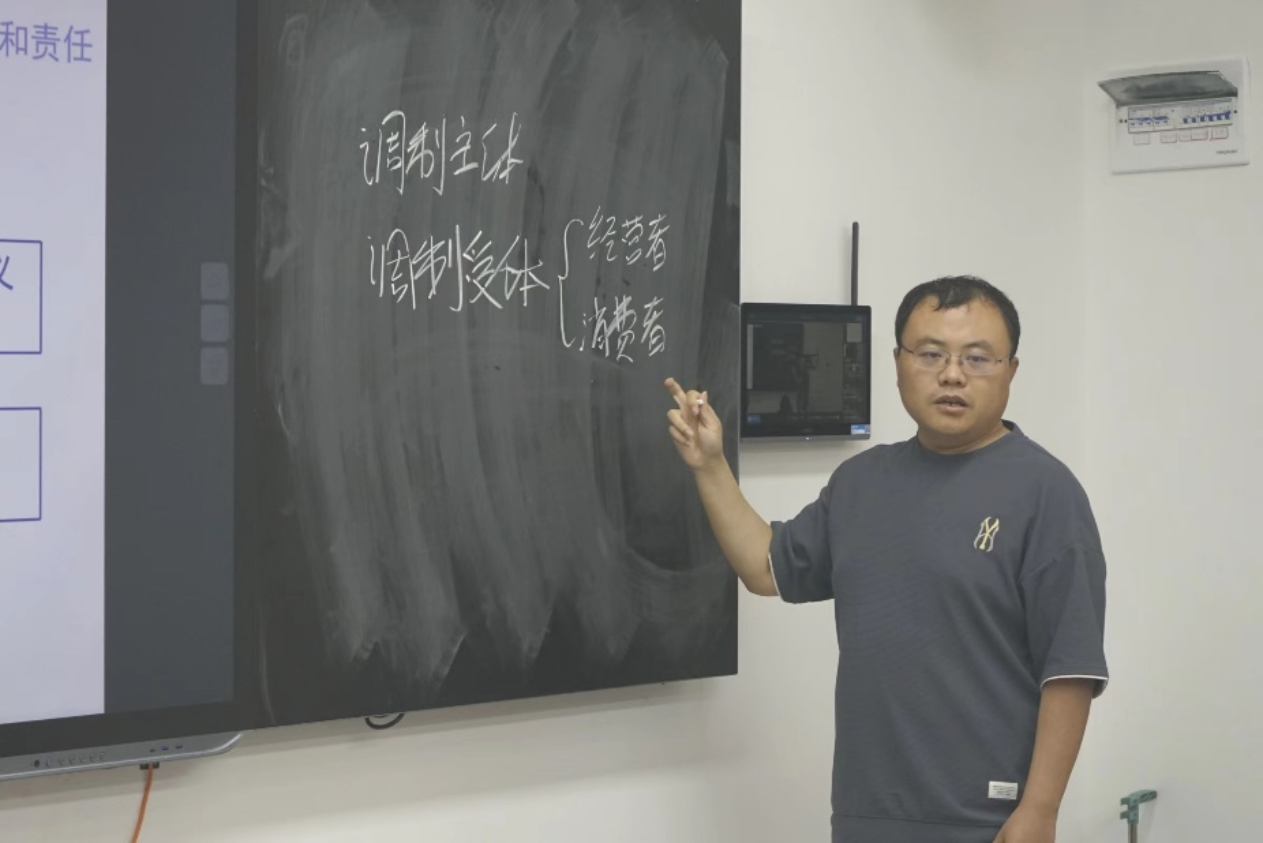 和责任
调制主体
调制受体
经营者
消费者